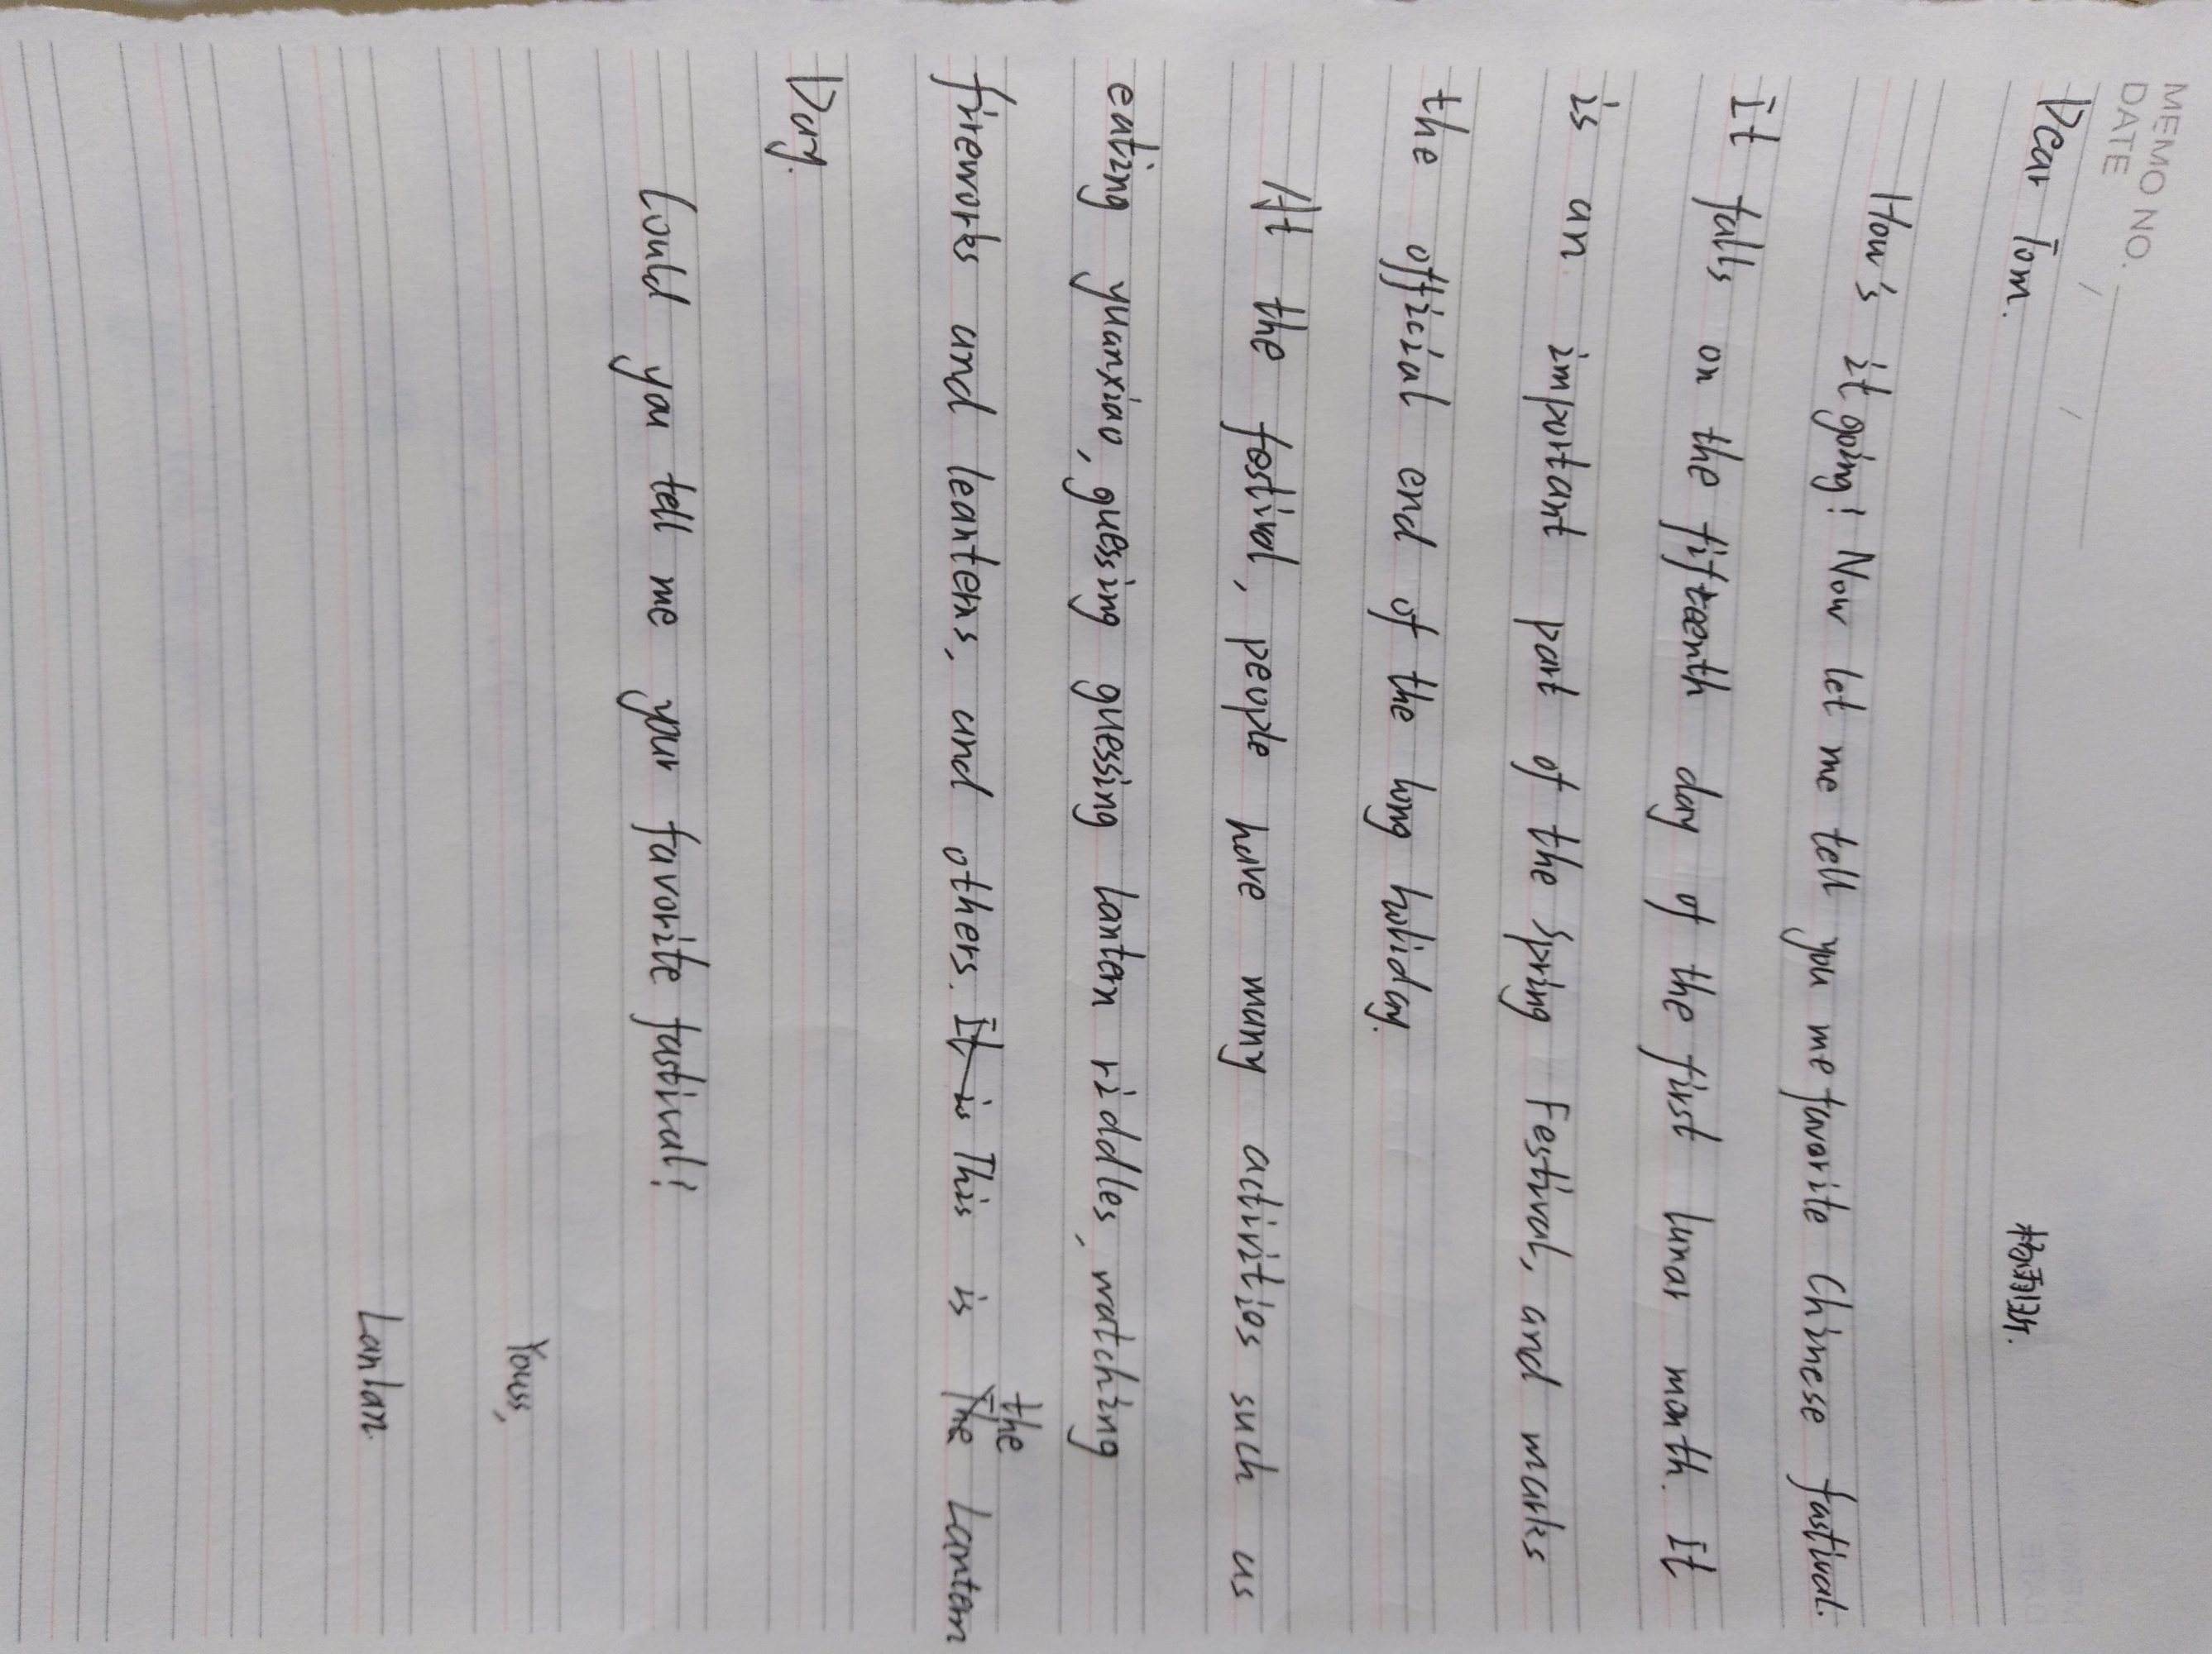 MEMO NO.
DATE / /
Dear Tom.
How's it going! Now let me tell you me favorite Chinese fastival.
It falls on the fifteenth day of the first lunar month. It
is an important part of the Spring Festival, and marks
the official end of the long holiday.
At the fostival, people have many activities such us
eating yuanxiao, guessing guessing lantern riddles, watching
fireworks and leanterns, and others. It is This is the The Lantern
Day.
Could you tell me your favorite fastival!
Yours,
Lanlan.